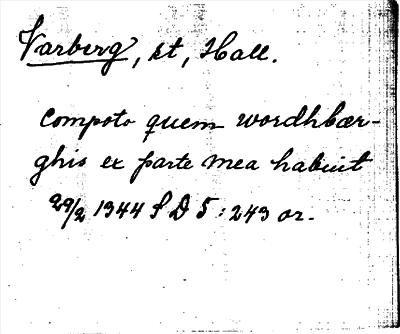 Varberg, st, Hall.
compoto quem wordhbær-
ghis ex parte mea habuit
29/2 1344 S D 5 : 243 or.